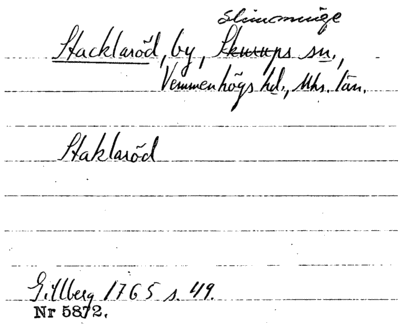 Slimminge
Stacklaröd, by, Skurups sn,
Vemmenhögs hd., Mhs. län.
Staklaröd
Gillberg 1765 s. 49.
Nr 5872.